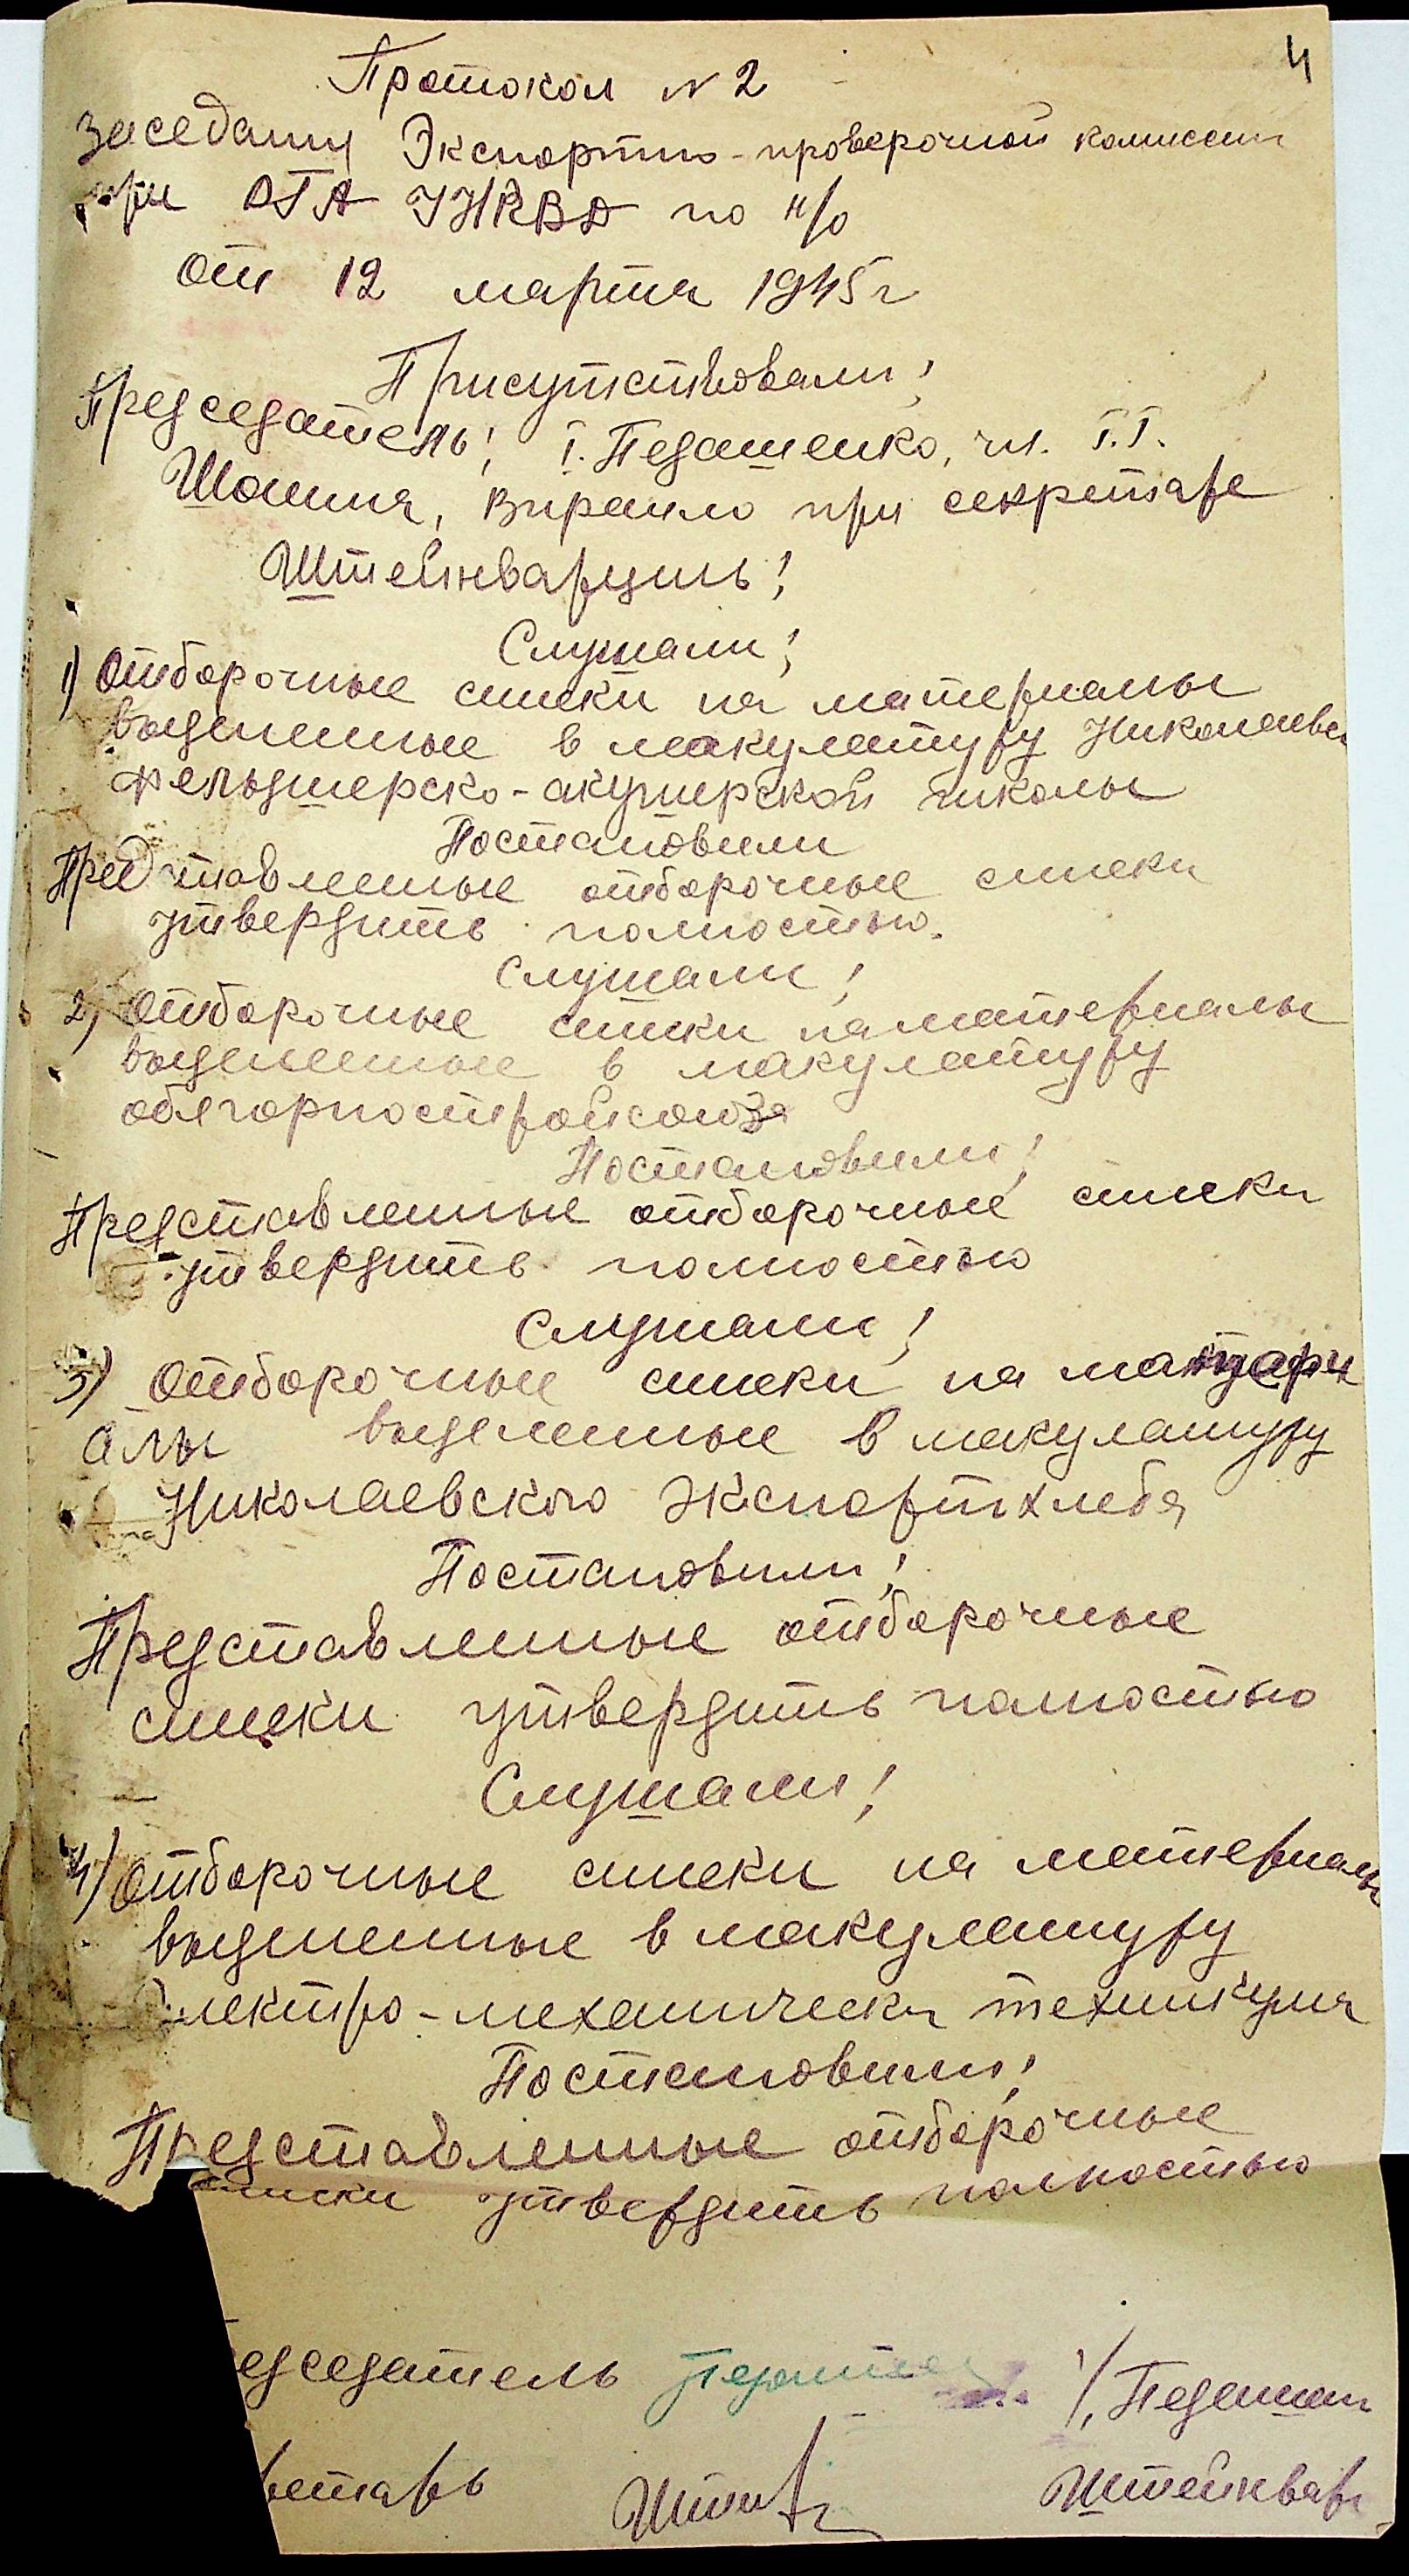 4
Протокол N 2
Заседания Экспертно-проверочной комиссии
при ОГА УНКВД по н/о
от 12 марта 1945 г
Присутствовали:
Председатель: т. Педашенко, чл. т.т.
Шонина, при секретаре
Штейнварциль:
Слушали:
1) Отборочные списки на материалы
выделенные в макулатуру Николаевск
Фельдшерско-акушерской школы
Постановили
Представленные отборочные списки
утвердить полностью.
Слушали:
2) Отборочные списки на материалы
выделенные в макулатуру
Постановили:
Представленные отборочные списки
утвердить полностью
Слушали:
3) Отборочные списки на матери
алы выделенные в макулатуру
Николаевского Экспортхлеба
Постановили:
Представленные отборочные
списки утвердить полностью
Слушали:
4) Отборочные списки на материалы
выделенные в макулатуру
лектро-механическ техникума
Постановили:
Представленные отборочные
списки утвердить полностью
едседатель /Педашен
ретарь Штейнвар